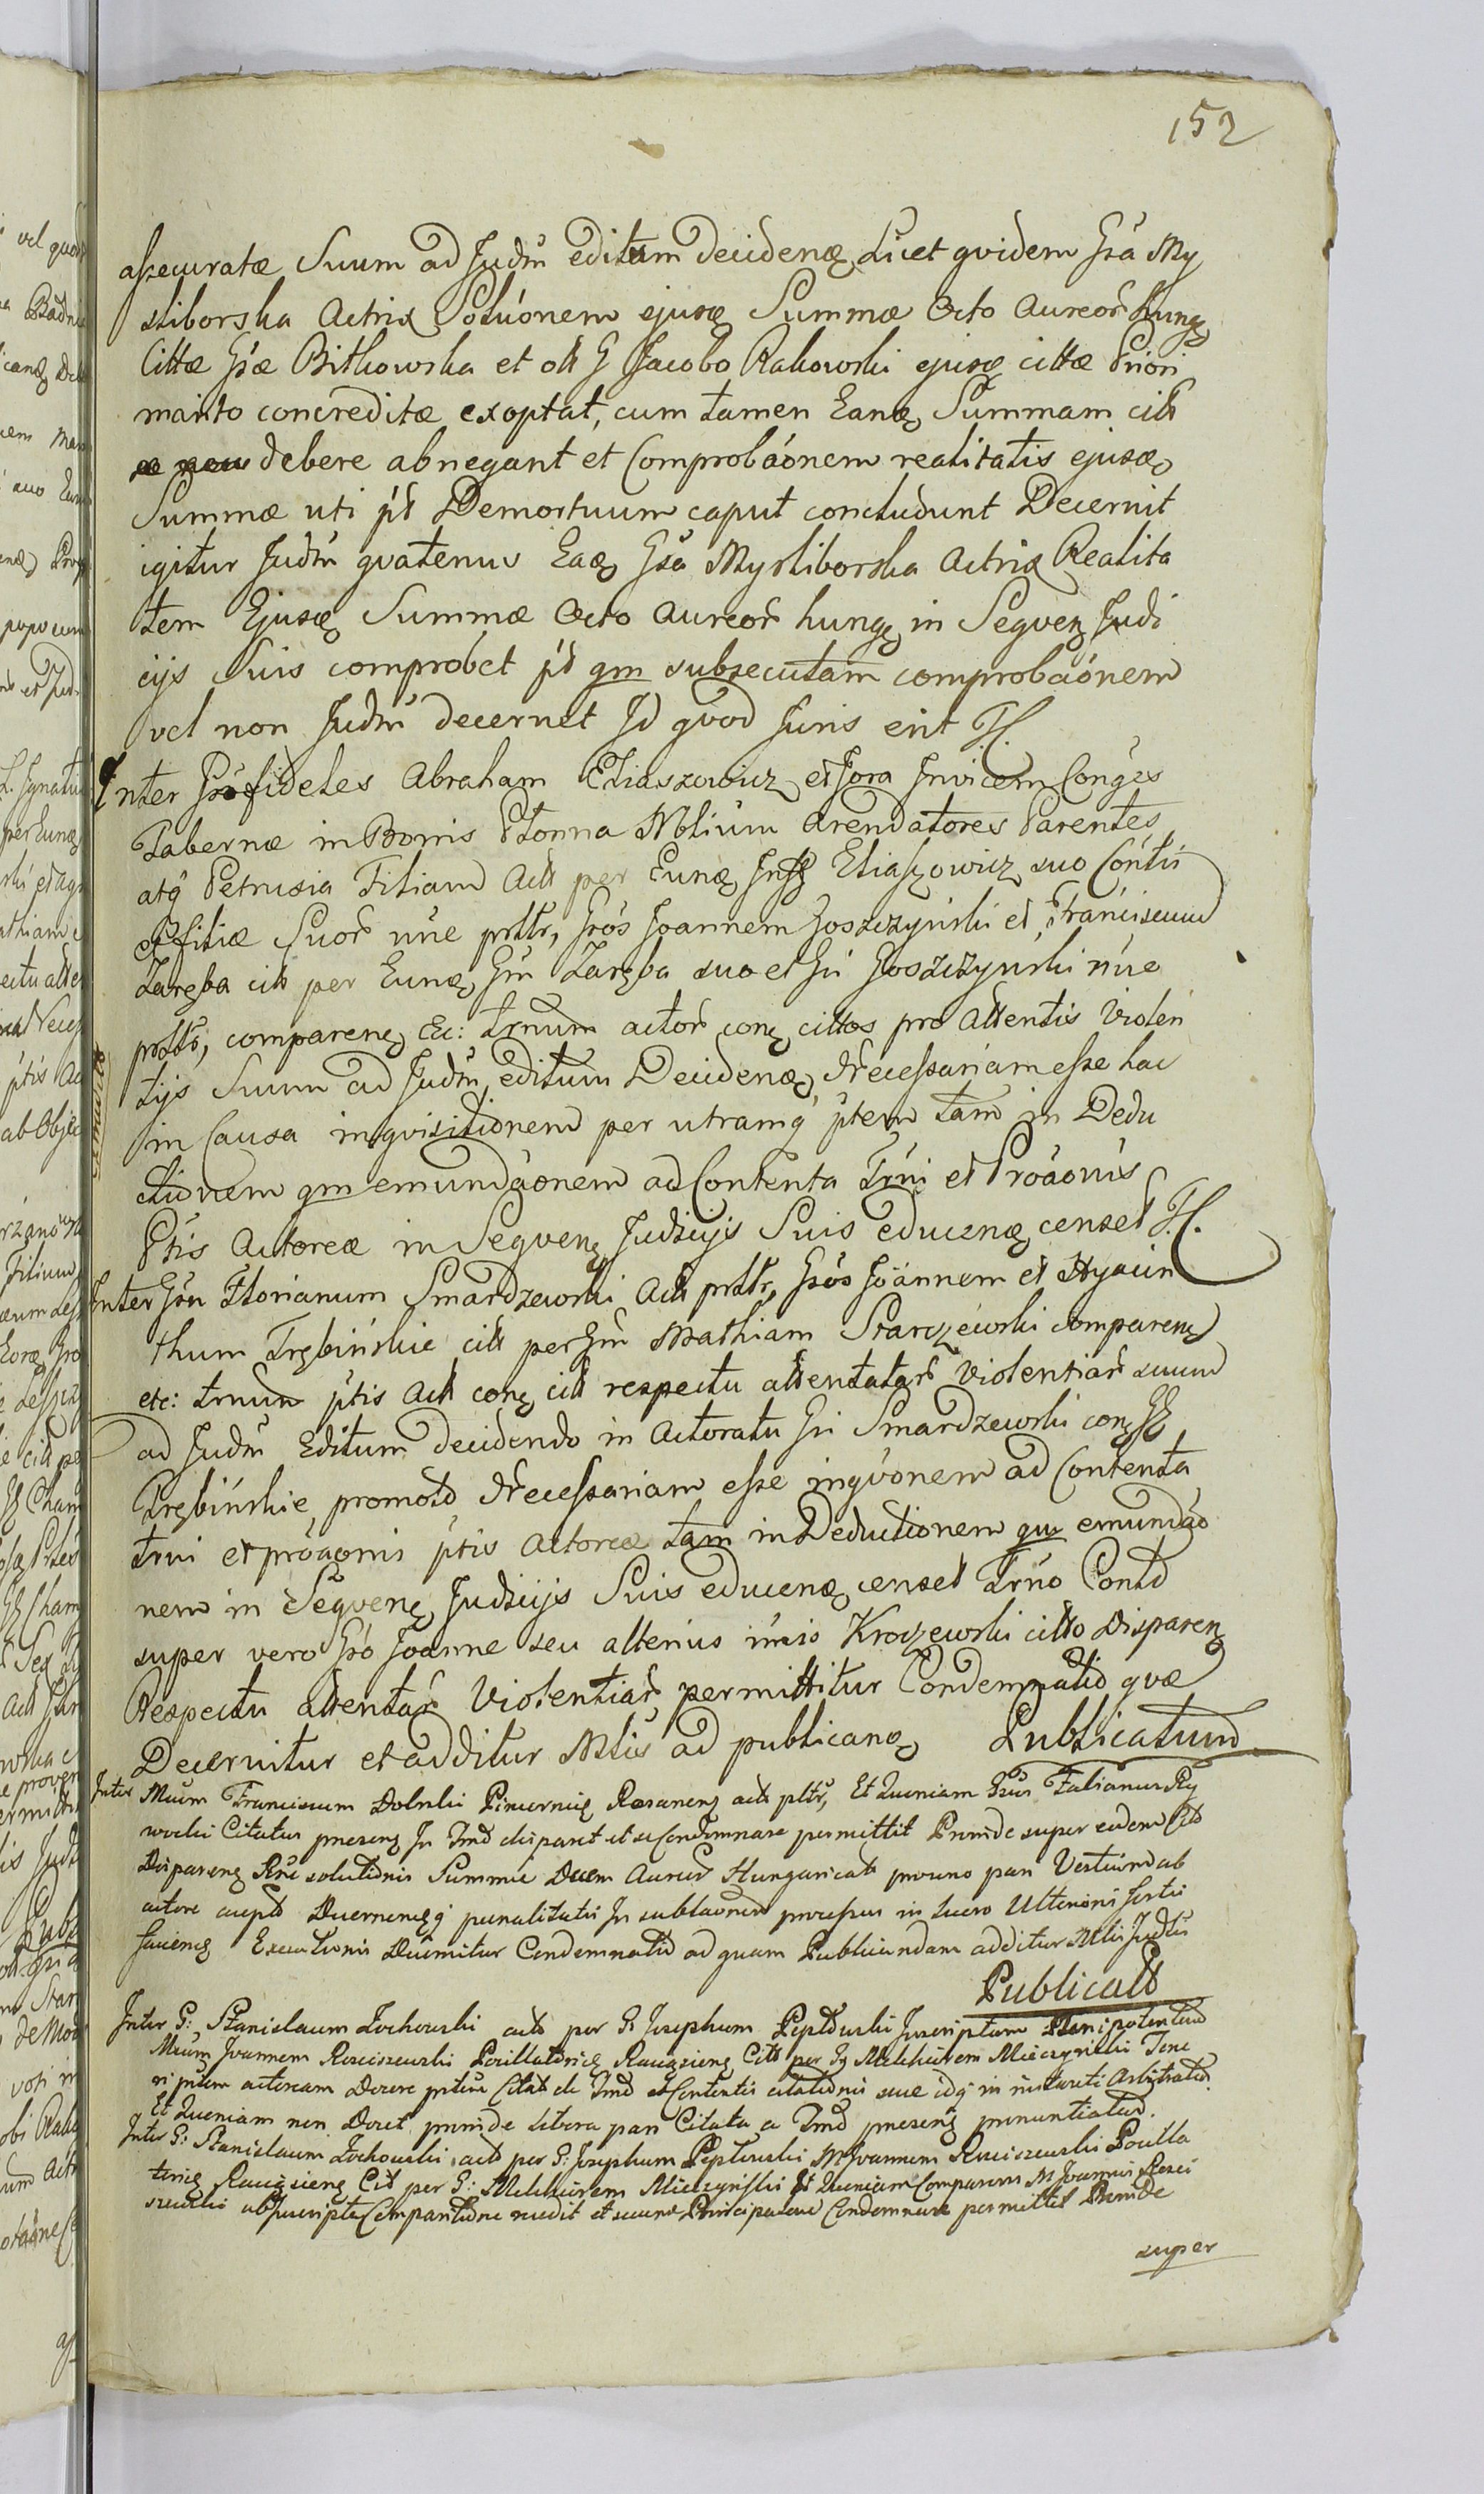 152
assecuratæ Suum ad Judm̃ editum decidenđ Licet qvidem Gsa My
sliborska Actrix Solũonem ejusđ Summæ Octo Aureor̃ Hung
Cittæ Gsæ Bitkowska et olt G Jacobo Rakowski ejusđ cittæ Priori
marito concreditæ exoptat, cum tamen Eanđ Summam citt
debere abnegant et Comprobãonem realitatis ejusđ
Summæ uti pt Demortuum caput concludunt Decernit
igitur Judm̃ qvatenus Eađ Gsa Mysliborska Actrix Realita
tem Ejusđ Summæ Octo Aureor̃ hung in Seqven Judi
cijs Suis comprobet pt qm subsecutam comprobãonem
vel non Judm̃ decernet Id qvod Juris erit H.
Inter Infideles Abraham Eliaszowicz et Jora Invicem Conges
Tabernæ in Bonis Płonna Nbliũm Arendatores Parentes
atq̃ Petrusia Filiam Act per Eunđ Inf Eliaszowicz suo Contũ
et filiæ Suor̃ nñe prttr, Gsos Joannem Goszczyński et Franciscum
Zaręba citt per Eunđ Gm̃ Zaręba suo et Gsi Goszczyński nñe
prttr, comparenđ Etc: trnum actor̃ con cittos pro attentis Violen
tijs Suum ad Judm̃ editum Decidenđ Necessariam esse hac
in Causa inqvisitionem per utramq̃ ptem tam in Dedu
ctionem qm emundãonem ad Contenta Trni et Prõãonis
Ptis Actoreæ in Seqven Judicijs Suis educenđ censet H.
Inter Gsn Florianum Smardzewski Act prttr, Gsos Joannem et Hyacin
thum Trębińskie citt per Gm̃ Mathiam Starczewski comparenđ
etc: trnum ptis Act con citt respectu attentatar̃ Violentiar̃ suum
ad Judm̃ Editum decidendo in Actoratu Gsi Smardzewski con GG
Trębińskie promoto Necessariam esse inqvõnem ad Contenta
trni et prõãonis ptis Actoreæ tam in Deductionem qm emundão
nem in Seqven Judicijs Suis educenđ censet Trno Contō
super vero Gso Joanne seu alterius ĩmis Kroczewski citto Disparen
Respectu attentar̃ Violentiar̃ permittitur Condemnatio qvæ
Decernitur et additur Mlis ad publicanđ Publicatum
Inter Mcum Franciscum Dolski Pincernię Rosanen act pltr, Et Quoniam Gsus Fabianus Ry
wocki Citatus præsen In Tmo disparet et se Condemnare permittit Proinde super eodem Cito
Disparen Rñe solutionis Summæ Decem Aureor̃ Hungaricalt pro uno pari Vestium ab
actore accepto Decernenđq̃ pœnalitatis In sublaonem processus in lucro Ulterioris fortis
faciend Executionis Decernitur Condemnatio ad quam Publicandam additur Mlis Judlis
Publicatt
Inter G: Stanislaum Zochowski act per G Josephum Peplowski Inscriptum Plenipotentem
Mcum Joannem Rosciszewski Pocillatorię Raciązien Citt per G Melchiorem Mieczynski Tene
ri ptem actoream Docere ptem Citat de Tmo et Contentis citationis suæ idq̃ in instanti Arbitratio.
Et Quoniam non Docet proinde libera pars Citata a Tmo præsen pronuntiatur.
Inter G: Stanislaum Zochowski act per G: Josephum Peplowski M Joannem Rosciszewski Pocilla
torię Raciązien Cit per G: Melchiorem Mieczynski Et Quoniam Comparens M Joannis Rosci
szewski ab Inscripta Comparitione recedit et suum Principalem Condemnare permittit Proinde
super